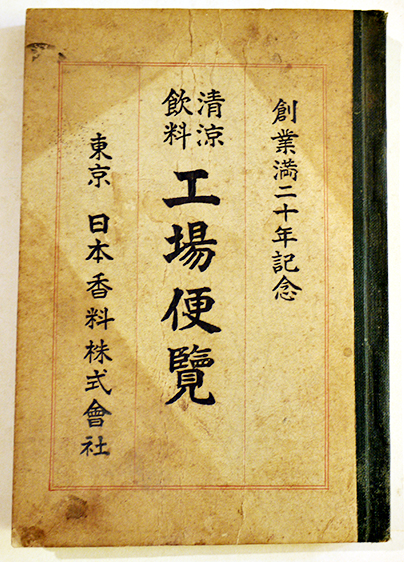 創業満二十年記念
清涼飲料 工場便覧
東京 日本香料株式會社